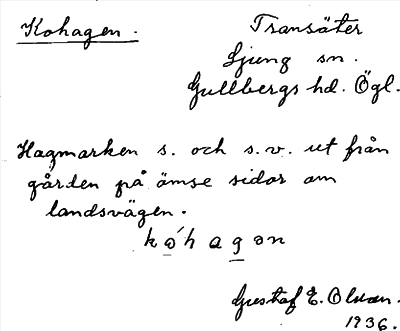 Kohagen.
Transäter
Ljung sn.
Gullbergs hd. Ögl.
Hagmarken s. och s.v. ut från
gården på ömse sidor om
landsvägen.
kǫ́hagǝn
Gustaf E. Olson.
1936.